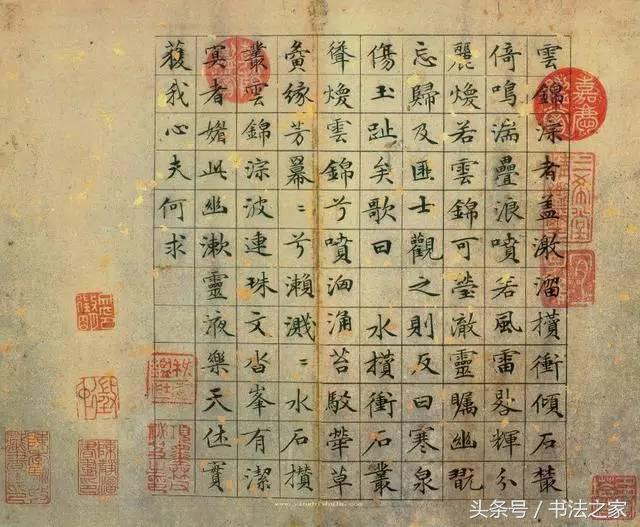 雲錦淙者盖激溜攅衝傾石叢
倚鳴湍疊浪噴若風雷晷輝分
麗煥若雲錦可瑩澈靈矚幽翫
忘歸及匪士觀之則反曰寒泉
傷玉趾矣歌曰 水攅衝石叢
聳煥雲錦兮噴洶涌苔駮犖草
夤緣芳冪〻兮瀨濺〻水石攢
叢雲錦淙波連珠文沓峯有潔
冥者媚此幽漱靈液樂天休實
獲我心夫何求
头条号 / 书法之家